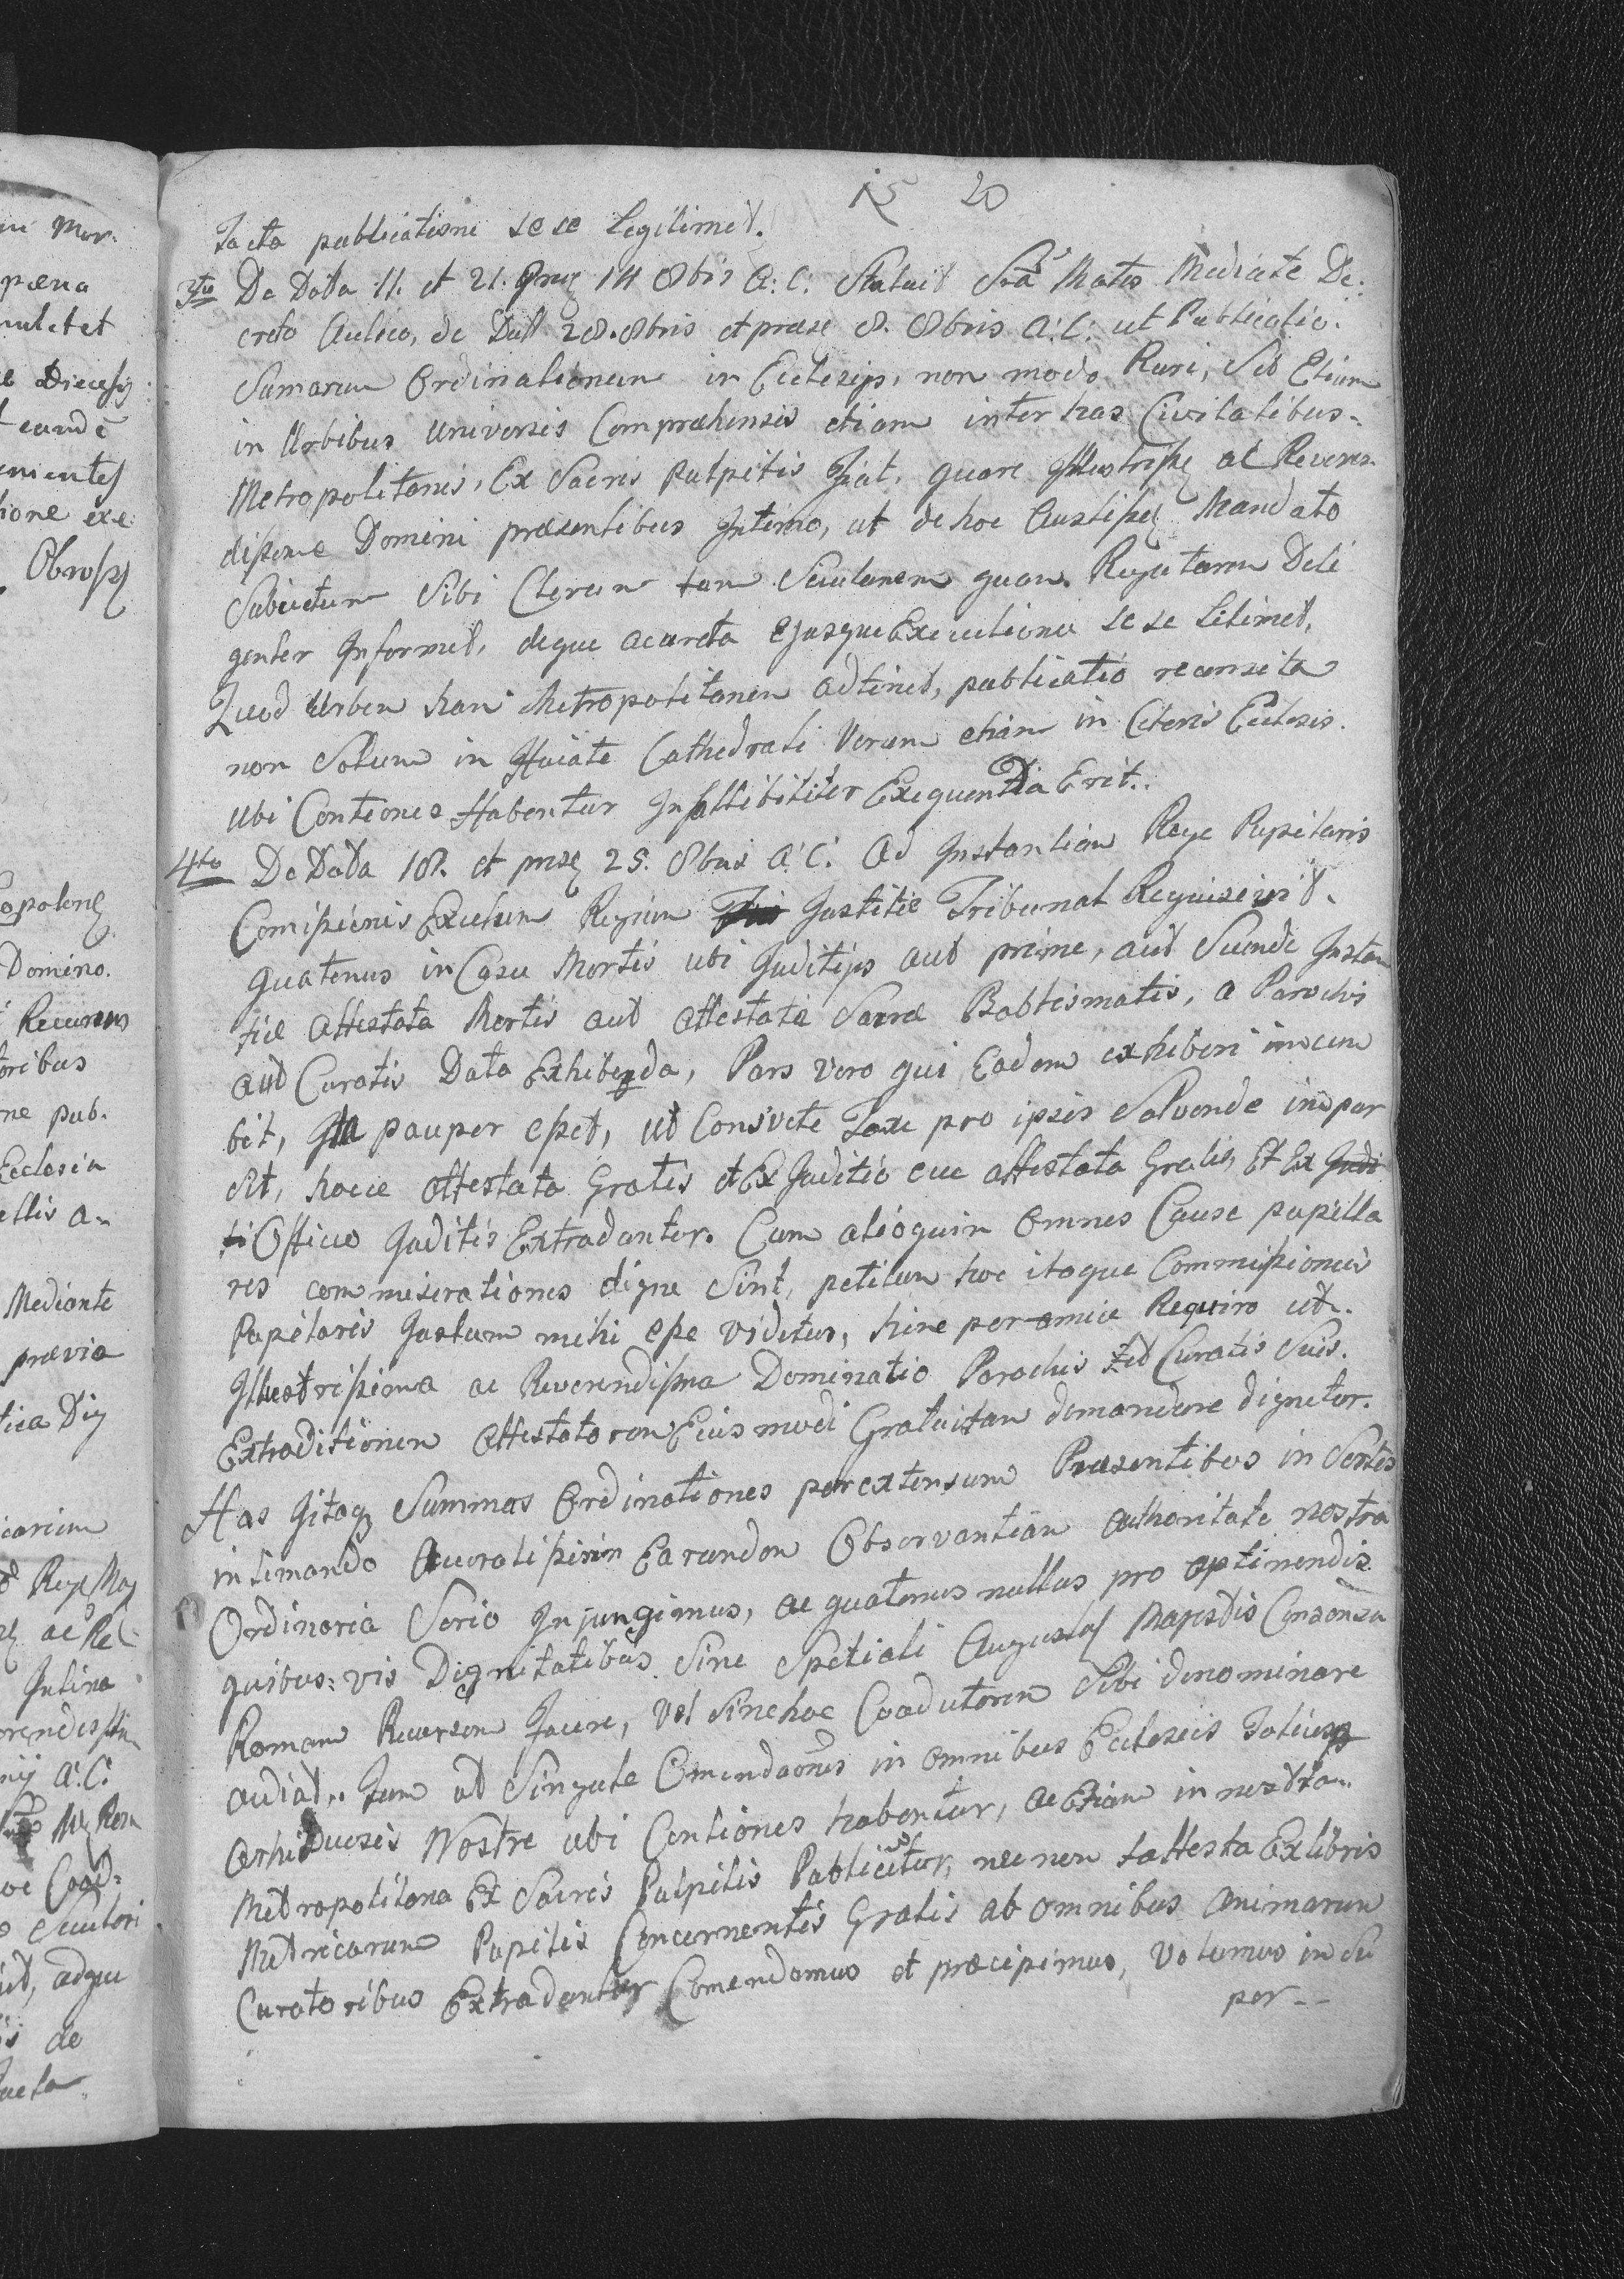 15 20
facta publicationi se se Legitimet.
3tio De Data 11. et 21. Prae 14 8bris A: C: Statuit Sra Mattas Mediate De:
creto Aulico, de Dat 28. 8bris et praese 8. 8bris A: C: ut Publicatio.
Sumarum Ordinationum in Eclesiys, non modo Ruri, Sed Etiam
in Urbibus universis Compraehensis etiam inter has Civitatibus.
Metropolitanis, Ex Sacris Pulpitis Fiat, quare Illustrisse ac Reveren
dissime Domini praesentibus Intimo, ut de hoc Austisse Mandato
Subiectum Sibi Clerum tam Secularem quam Regularem Deli
genter Informet, deque acurata Ejusque Executione se se Litimet,
Quod Urbem hanc Metropolitanam adtinet, publicatio recensita
non Solum in Huiate Cathedrali Verum etiam in Ceteris Eclesis.
ubi Contiones Habentur Infallibiliter Exequentia Erit..
4to De Data 18. et prase 25. 8bris A: C: Ad Instantiam Regae Pupilaris
Comissionis Excelsum Regium Justitie Tribunal Requisivit.
quatenus in Casu Mortis ubi Juditiis aut prime, aut Secunde Instan
tie Attestata Mortis aut Attestata Sacrae Babtismatis, a Parochis
aut Curatis Data Exhibenda, Pars vero qui Eadem exhiberi incum
bit, Ita pauper esset, ut Consvete Taxe pro ipsis Solvende inopar
sit, haece attestata Gratis et Ex Juditio eue attestata Gratis, Et Ex Judi
ti Officio Juditis Extradantur. Cum alioquin Omnes Cause pupilla
res commiserationis digne Sint, petitum hoc itaque Commissionis
Pupilaris Justum mihi esse videtur, hinc peramice Requiro ut.
Illustrissima ac Reverendissma Dominatio Parochis et Curatis Suis.
Extraditionem Attestatorum Eius modi Gratuitam demandare dignetur.
Has Itaq Summas Ordinationes per extensum Praesentibus in Sertes
intimando Acuratissimam Earundem Observantiam authoritate nostra
Ordinaria Serio Injungimus, ac quatenus nullus pro optinendis
quibus: vis Dignitatibus Sine Spetiali Augustae Majestatis Consensu
Romam Recursum Facere, vel Sine hoc Coadutorem Sibi denominare
audiat.. Jum ut Singule Omendaones in Omnibus Eclesiis Totiusq
Arhiduesis Nostre ubi Contiones habentur, ac Etiam in nostra
Metropolitana Ex Sacris Pulpitis Publicetur, nec non tattesta Ex libris
Metricarum Pupilis Concernentis Gratis ab Omnibus Animarum
Curatoribus Extradantur Comendamus et praecipimus, Volumus in Su
per--
ni Mar.
paena
ruletet
e Dieces
eunde
nientes
tione exe
Obross
Domino.
Recursus
toribus
ne pub.
Eclesia
ellis a-
Mediante
praevia
tica Dig
icarium
Rege Mag
ac Re
Intima
A: C:
oe Coad=
Seculari
ut, adque
de
facta